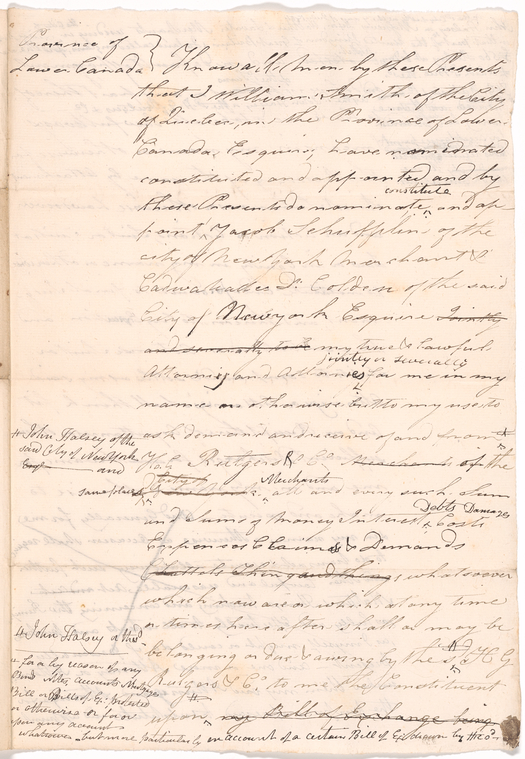 Province of
Lower Canada } Know all Men by these Presents
that I William Smith of the City
of Quebec, in the Province of Lower
Canada, Esquire, have nominated
constituted and appointed and by
constitute
these Presents do nominate ^ and ap-
point Jacob Schieffelin of the
city of New York Merchant &
Cadwallader D. Colden of the said
City of New York Esquire Jointly
and severally to be my true & lawful
jointly or severally
Attorney and Attornies for me in my
name or otherwise but to my use to
ask demand and receive of and from
# John Halsey of the
said City of New York
and
same place
H. G. Rutgers & Co Merchants of the
City
Merchants
all and every such Sum
Debts Damages
and Sums of Money Interest Costs
Expences Claims & Demands
Chattels Thing and things whatsoever
which now are or which at any time
or times hereafter shall or may be
# John Halsey & the sd
belonging or due & owing by the sd H G
Rutgers & Co to me the Constituent
upon my Bill of Exchange being
or for a by reason of any
Bond Notes Accounts
Bill or Bills of Ex. Protested
or otherwise or for or
upon any account
whatsoever but more particularly on account of a certain Bill of Ex drawn by